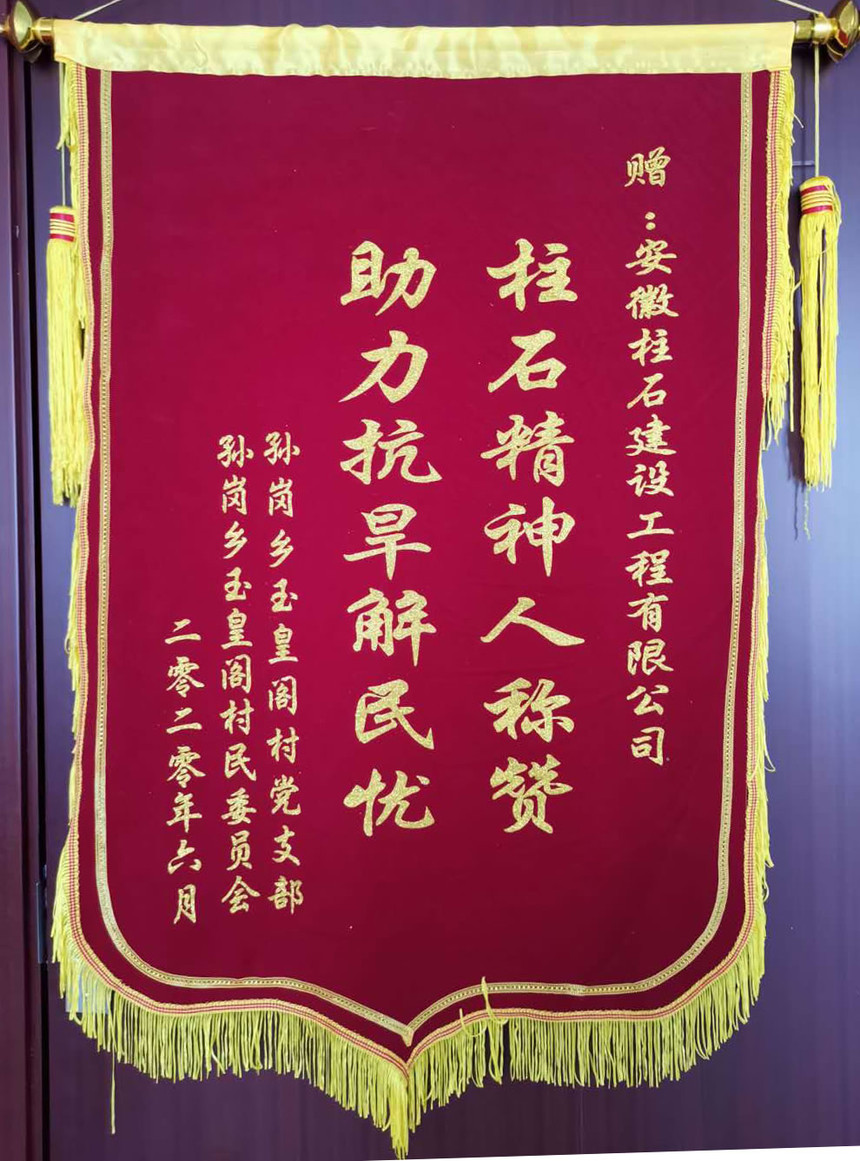 赠：安徽柱石建设工程有限公司
柱石精神人称赞
助力抗旱解民忧
孙岗乡玉皇阁村党支部
孙岗乡玉皇阁村民委员会
二零二零年六月